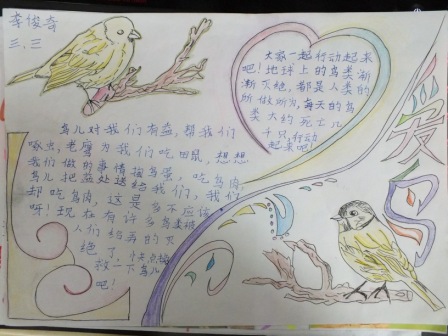 李俊奇
三、三
大家一起行动起来
吧!地球上的鸟类渐
渐灭绝,都是人类的
所做所为,每天的鸟
类大约死亡几
千只,行动
起来吧!
爱鸟
鸟儿对我们有益,帮我们
啄虫,老鹰为我们吃田鼠,想想
我们做的事情捣鸟巢,吃鸟肉,
鸟儿把益处送给我们,我们
却吃鸟肉,这是多不应该
呀!现在有许多鸟类被
人们给弄的灭
绝了,快点
救一下鸟儿
吧!